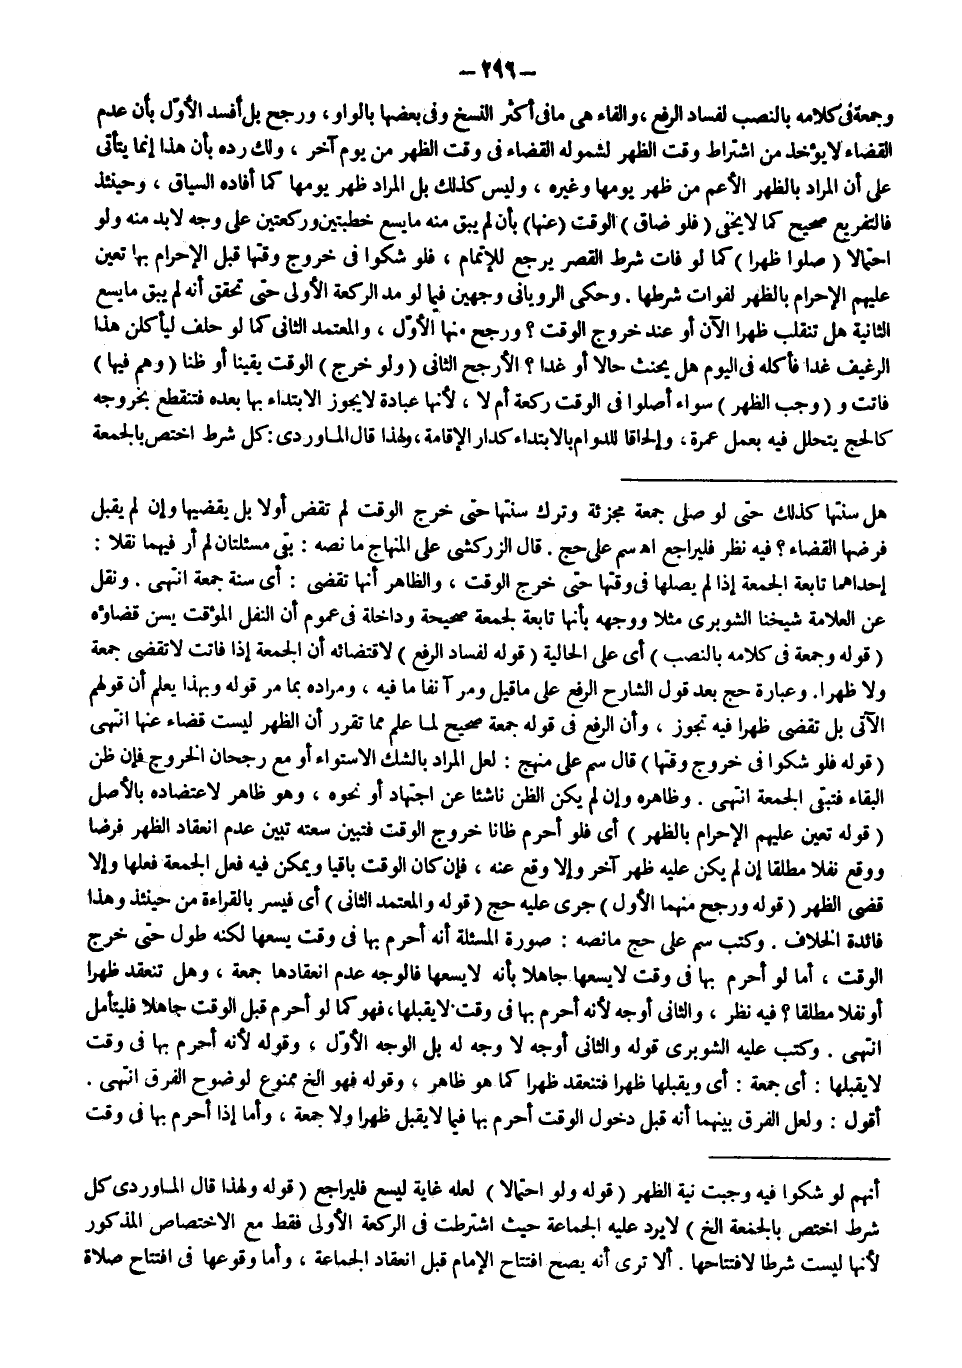 — ٢٩٦ —
وجمعة فى كلامه بالنصب لفساد الرفع ، والفاء هى مافى أكثر النسخ وفى بعضها بالواو ، ورجح بل أفسد الأوّل بأن عدم
القضاء لا يؤخذ من اشتراط وقت الظهر لشموله القضاء فى وقت الظهر من يوم آخر ، ولك رده بأن هذا إنما يتأتى
على أن المراد بالظهر الأعم من ظهر يومها وغيره ، وليس كذلك بل المراد ظهر يومها كما أفاده السياق ، وحينئذ
فالتفريع صحيح كما لا يخفى ( فلو ضاق ) الوقت (عنها) بأن لم يبق منه مايسع خطبتين وركعتين على وجه لابد منه ولو
احتمالا ( صلوا ظهرا ) كما لو فات شرط القصر يرجع للإتمام ، فلو شكوا فى خروج وقتها قبل الإحرام بها تعين
عليهم الإحرام بالظهر لفوات شرطها . وحكى الرويانى وجهين فيما لو مد الركعة الأولى حتى تحقق أنه لم يبق مايسع
الثانية هل تنقلب ظهرا الآن أو عند خروج الوقت ؟ ورجح منها الأوّل ، والمعتمد الثانى كما لو حلف ليأكلن هذا
الرغيف غدا فأكله فى اليوم هل يحنث حالا أو غدا ؟ الأرجح الثانى ( ولو خرج ) الوقت يقينا أو ظنا ( وهم فيها )
فاتت و ( وجب الظهر ) سواء أصلوا فى الوقت ركعة أم لا ، لأنها عبادة لايجوز الابتداء بها بعده فتنقطع بخروجه
كالحج يتحلل فيه بعمل عمرة ، وإلحاقا للدوام بالابتداء كدار الإقامة ، ولهذا قال الماوردى : كل شرط اختص بالجمعة
هل سنتها كذلك حتى لو صلى جمعة مجزئة وترك سنتها حتى خرج الوقت لم تقض أولا بل يقضيها وإن لم يقبل
فرضها القضاء ؟ فيه نظر فليراجع اه سم على حج . قال الزركشى على المنهاج ما نصه : بقى مسئلتان لم أر فيهما نقلا :
إحداهما تابعة الجمعة إذا لم يصلها فى وقتها حتى خرج الوقت ، والظاهر أنها تقضى : أى سنة جمعة انتهى . ونقل
عن العلامة شيخنا الشوبرى مثلا ووجهه بأنها تابعة لجمعة صحيحة وداخلة فى عموم أن النفل المؤقت يسن قضاؤه
( قوله وجمعة فى كلامه بالنصب ) أى على الحالية ( قوله لفساد الرفع ) لاقتضائه أن الجمعة إذا فاتت لا تقضى جمعة
ولا ظهرا . وعبارة حج بعد قول الشارح الرفع على ماقيل ومر آنفا ما فيه ، ومراده بما مر قوله وبهذا يعلم أن قولهم
الآتى بل تقضى ظهرا فيه تجوز ، وأن الرفع فى قوله جمعة صحيح لما علم مما تقرر أن الظهر ليست قضاء عنها انتهى
( قوله فلو شكوا فى خروج وقتها ) قال سم على منهج : لعل المراد بالشك الاستواء أو مع رجحان الخروج فإن ظن
البقاء فتبقى الجمعة انتهى . وظاهره وإن لم يكن الظن ناشئا عن اجتهاد أو نحوه ، وهو ظاهر لاعتضاده بالأصل
( قوله تعين عليهم الإحرام بالظهر ) أى فلو أحرم ظانا خروج الوقت فتبين سعته تبين عدم انعقاد الظهر فرضا
ووقع نفلا مطلقا إن لم يكن عليه ظهر آخر وإلا وقع عنه ، فإن كان الوقت باقيا ويمكن فيه فعل الجمعة فعلها وإلا
قضى الظهر ( قوله ورجح منهما الأول ) جرى عليه حج (قوله والمعتمد الثانى ) أى فيسر بالقراءة من حينئذ وهذا
فائدة الخلاف . وكتب سم على حج مانصه : صورة المسئلة أنه أحرم بها فى وقت يسعها لكنه طول حتى خرج
الوقت ، أما لو أحرم بها فى وقت لايسعها جاهلا بأنه لايسعها فالوجه عدم انعقادها جمعة ، وهل تنعقد ظهرا
أو نفلا مطلقا ؟ فيه نظر ، والثانى أوجه لأنه أحرم بها فى وقت لايقبلها ، فهو كما لو أحرم قبل الوقت جاهلا فليتأمل
انتهى . وكتب عليه الشوبرى قوله والثانى أوجه لا وجه له بل الوجه الأوّل ، وقوله لأنه أحرم بها فى وقت
لايقبلها : أى جمعة : أى ويقبلها ظهرا فتنعقد ظهرا كما هو ظاهر ، وقوله فهو الخ ممنوع لوضوح الفرق انتهى .
أقول : ولعل الفرق بينهما أنه قبل دخول الوقت أحرم بها فيما لايقبل ظهرا ولا جمعة ، وأما إذا أحرم بها فى وقت
أنهم لو شكوا فيه وجبت نية الظهر ( قوله ولو احتمالا ) لعله غاية ليسع فليراجع ( قوله ولهذا قال الماوردى كل
شرط اختص بالجمعة الخ ) لايرد عليه الجماعة حيث اشترطت فى الركعة الأولى فقط مع الاختصاص المذكور
لأنها ليست شرطا لافتتاحها . ألا ترى أنه يصح افتتاح الإمام قبل انعقاد الجماعة ، وأما وقوعها فى افتتاح صلاة